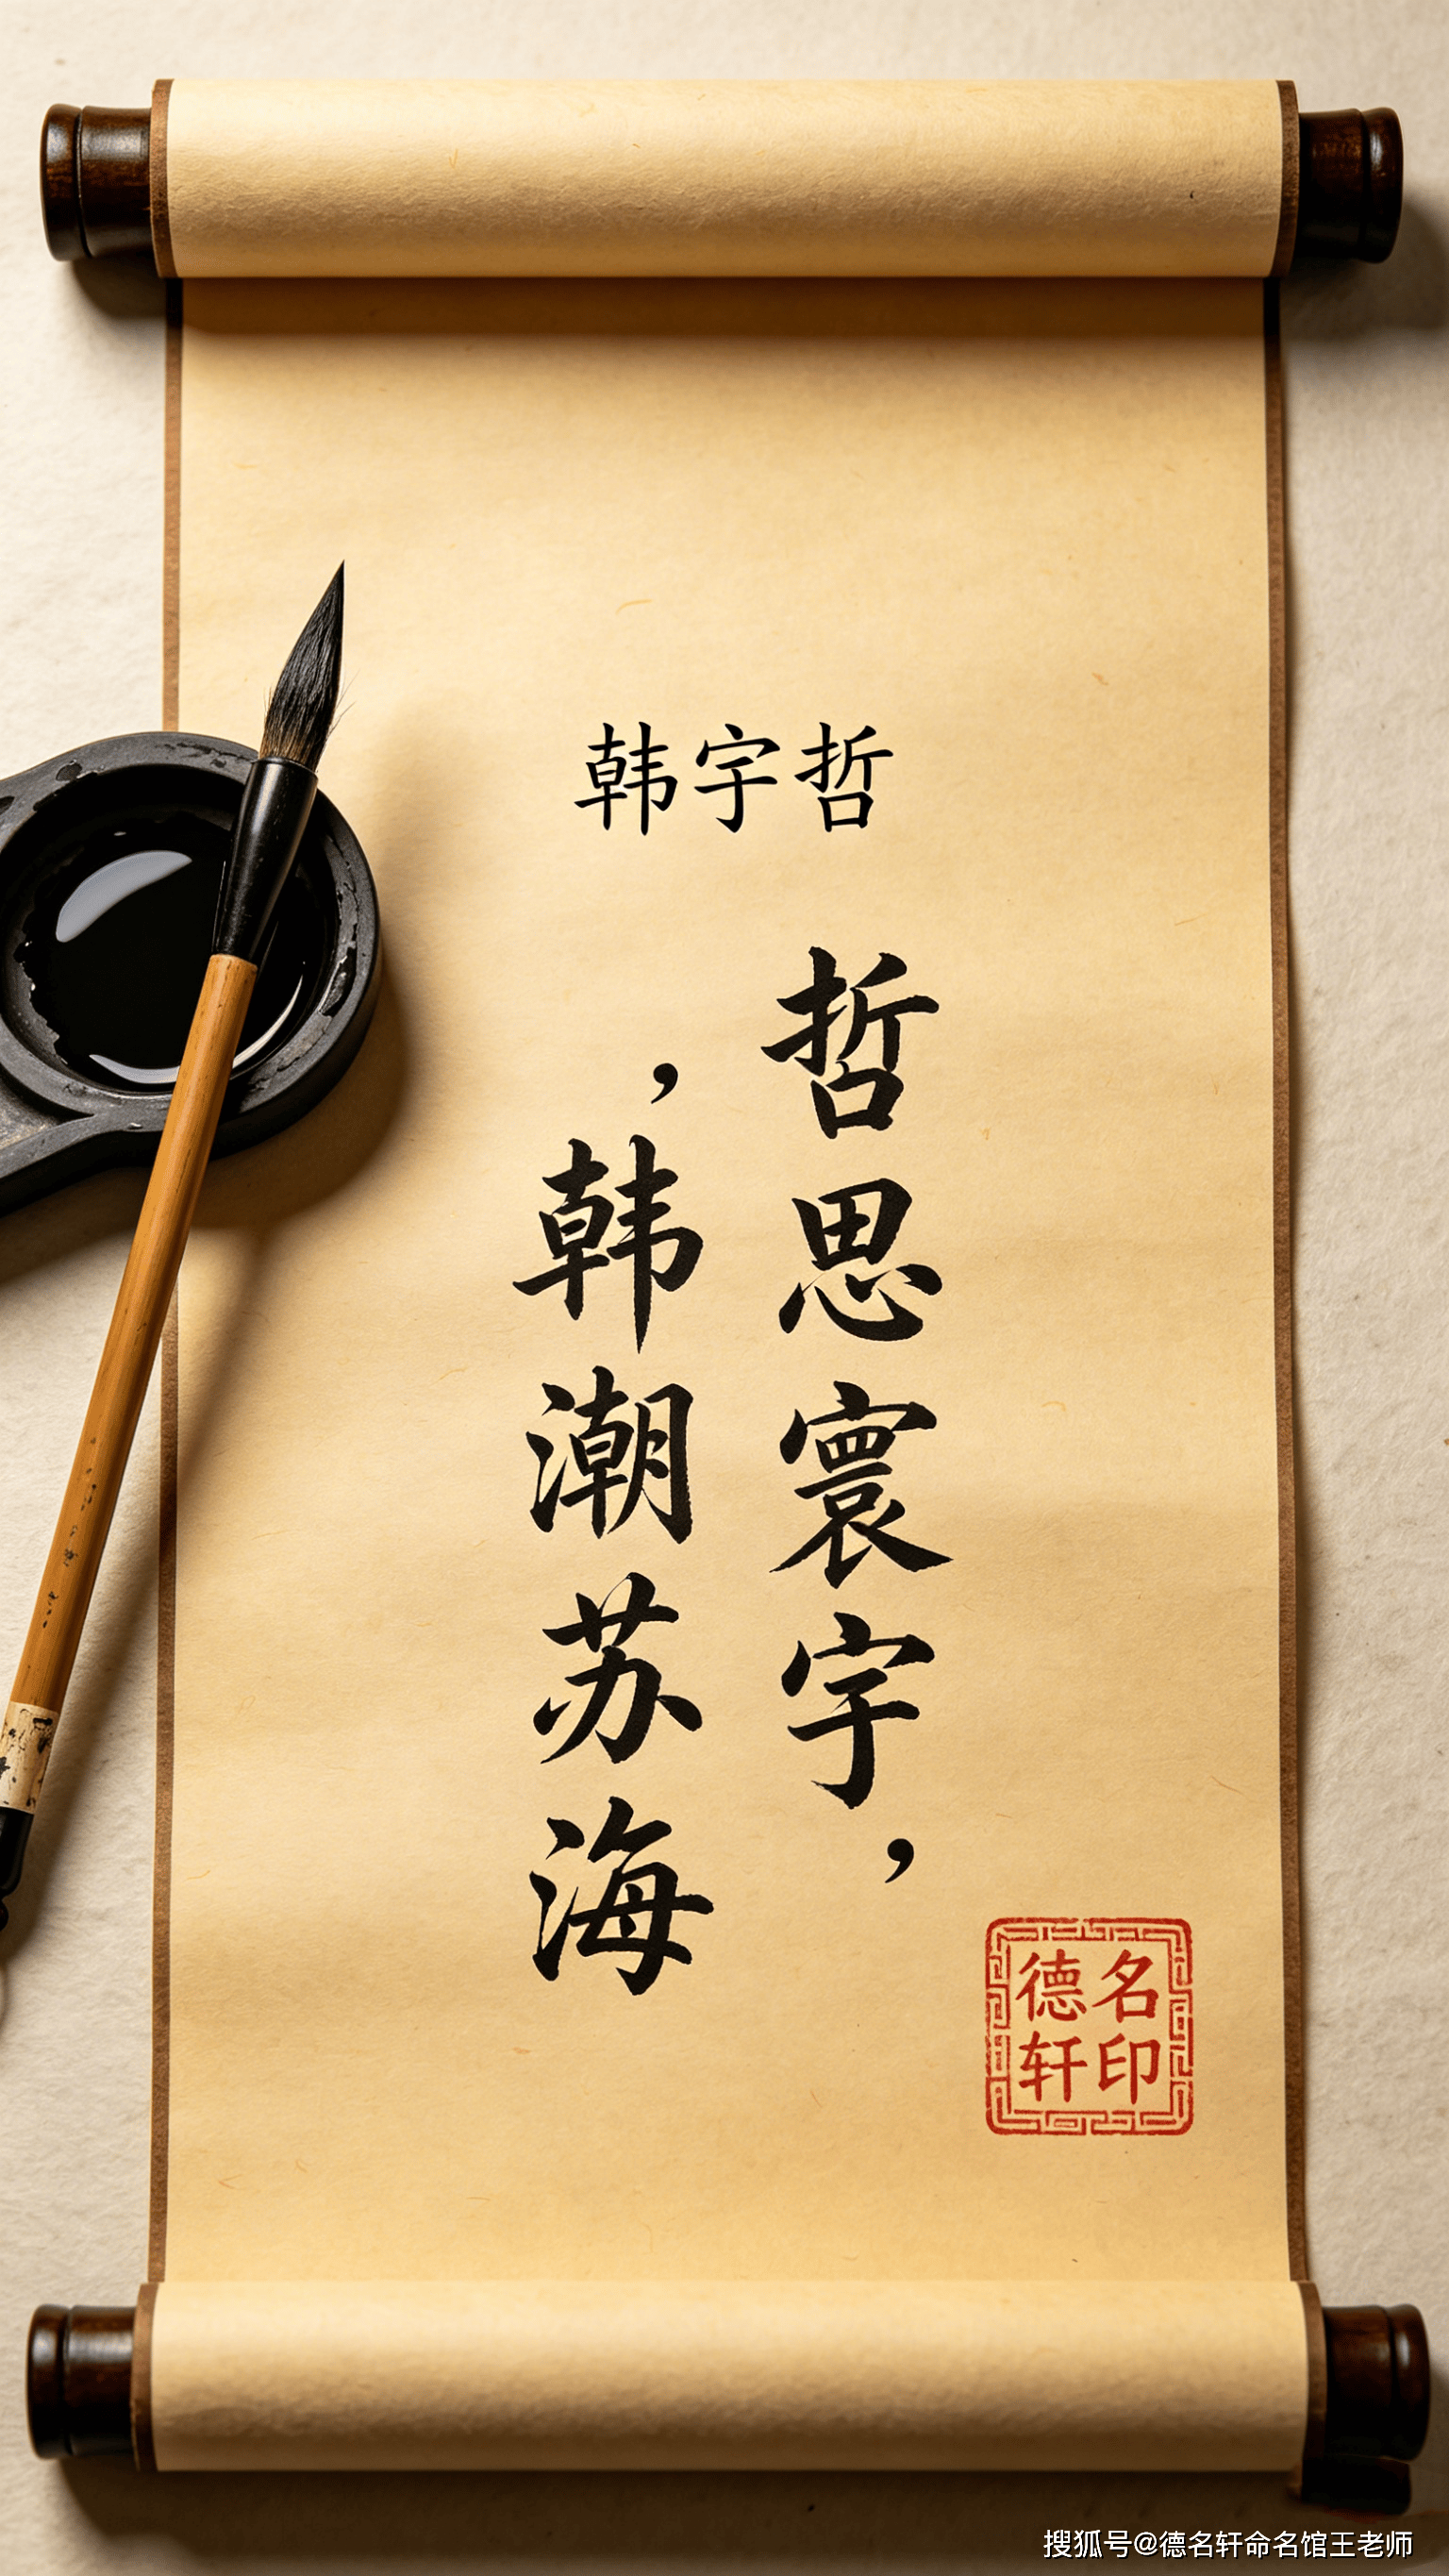 韩宇哲
哲思寰宇，
，韩潮苏海
名印
德轩
搜狐号@德名轩命名馆王老师